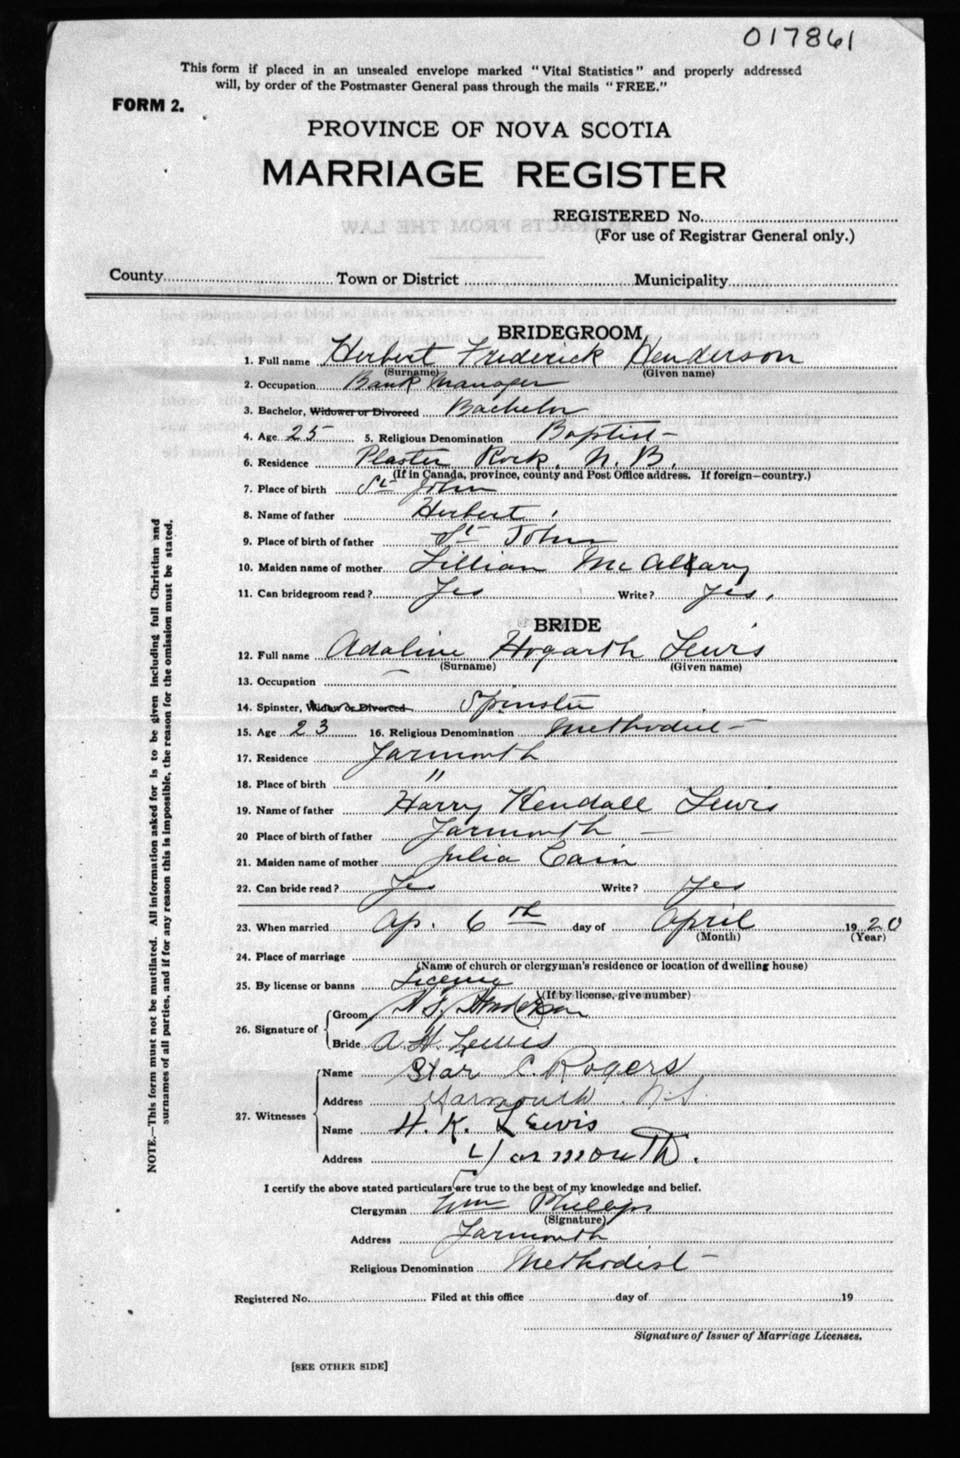 017861
This form if placed in an unsealed envelope marked "Vital Statistics" and properly addressed
will, by order of the Postmaster General pass through the mails "FREE."
FORM 2.
PROVINCE OF NOVA SCOTIA
MARRIAGE REGISTER
REGISTERED No.
(For use of Registrar General only.)
County Town or District Municipality
BRIDEGROOM
1. Full name Herbert Frederick Henderson
(Surname) (Given name)
2. Occupation Bank Manager
3. Bachelor, Widower or Divorced Bachelor
4. Age 25 5. Religious Denomination Baptist
6. Residence Plaster Rock, N. B.
(If in Canada, province, county and Post Office address. If foreign—country.)
7. Place of birth St John
8. Name of father Herbert
9. Place of birth of father St John
10. Maiden name of mother Lillian
11. Can bridegroom read? Yes Write? Yes.
BRIDE
12. Full name Adaline Hogarth Lewis
(Surname) (Given name)
13. Occupation —
14. Spinster, Widow or Divorced Spinster
15. Age 23 16. Religious Denomination Methodist —
17. Residence Yarmouth
18. Place of birth "
19. Name of father Harry Kendall Lewis
20 Place of birth of father Yarmouth —
21. Maiden name of mother Julia Cain
22. Can bride read? Yes Write? Yes
23. When married Ap. 6th day of April 1920
(Month) (Year)
24. Place of marriage
(Name of church or clergyman's residence or location of dwelling house)
25. By license or banns License
(If by license, give number)
26. Signature of
Groom Henderson
Bride A. H. Lewis
27. Witnesses
Name Star C. Rogers
Address Yarmouth N.S.
Name H. K. Lewis
Address Yarmouth.
I certify the above stated particulars are true to the best of my knowledge and belief.
Clergyman Wm Phillips
(Signature)
Address Yarmouth
Religious Denomination Methodist —
Registered No. Filed at this office day of 19
Signature of Issuer of Marriage Licenses.
[SEE OTHER SIDE]
NOTE.—This form must not be mutilated. All information asked for is to be given including full Christian and
surnames of all parties, and if for any reason this is impossible, the reason for the omission must be stated.